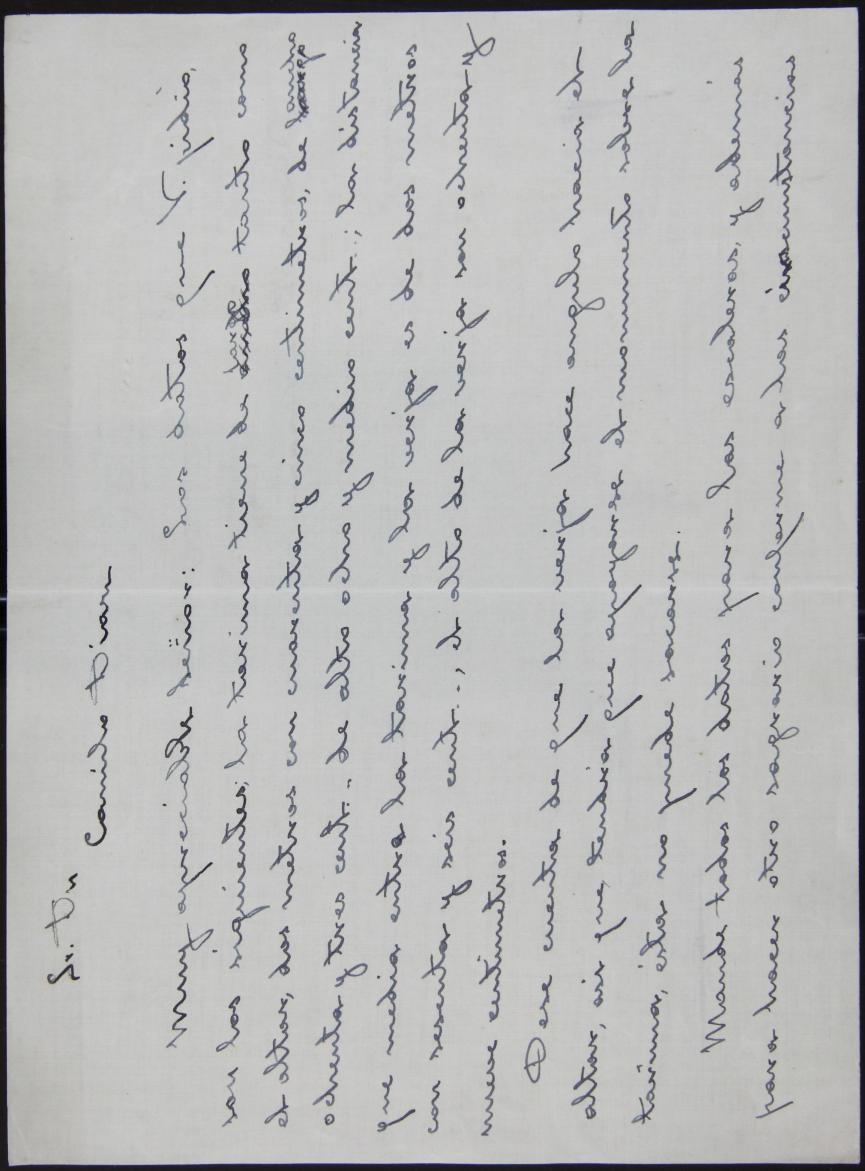 Sr. Dn
Camilo Díaz
Muy apreciable señor: Los datos que V. pidió,
son los siguientes; la tarima tiene de largo tanto como
el altar, dos metros con cuarenta y cinco centimetros, de ancho
ochenta y tres cent., de alto ocho y medio cent.; la distancia
que media entre la tarima y la verja es de dos metros
con sesenta y seis cent.., el alto de la verja son ochenta y
nueve centimetros.
Dese cuenta de que la verja hace angulo hacia el
altar, asi que, tendria que apoyarse el monumento sobre la
tarima, ésta no puede sacarse.
Mande todos los datos para las escaleras, y ademas
para hacer otro sagrario conforme a las circunstancias